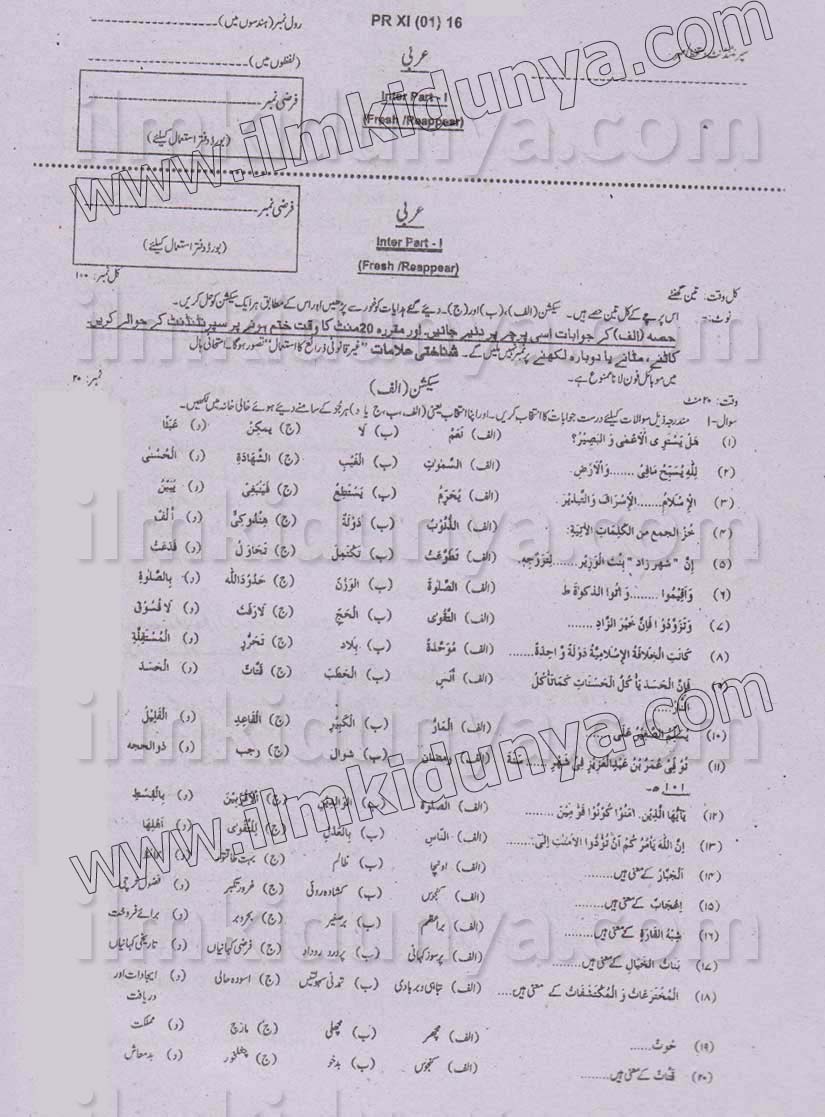 PR XI (01) 16
رول نمبر (ہندسوں میں)
عربی
(لفظوں میں)
Inter Part - I
(Fresh /Reappear)
فرضی نمبر
(بورڈ دفتر استعمال کیلئے)
www.ilmkidunya.com
فرضی نمبر
(بورڈ دفتر استعمال کیلئے)
عربی
Inter Part - I
(Fresh /Reappear)
کل وقت: تین گھنٹے
کل نمبر: ۱۰۰
نوٹ:- اس پرچے کے کل تین حصے ہیں۔ سیکشن (الف)، (ب) اور (ج)۔ دیے گئے ہدایات کو غور سے پڑھیں اور اس کے مطابق ہر ایک سیکشن کو حل کریں۔
حصہ (الف) کے جوابات اسی پرچے پر دئیے جائیں۔ اور مقررہ 20 منٹ کا وقت ختم ہونے پر سپرنٹنڈنٹ کے حوالے کریں۔
کاٹنے، مٹانے یا دوبارہ لکھنے پر نمبر نہیں ملیں گے۔ شناختی علامات "غیر قانونی ذرائع کا استعمال" تصور ہوگا۔ امتحانی ہال
میں موبائل فون لانا ممنوع ہے۔
سیکشن (الف)
وقت: ۲۰ منٹ
نمبر: ۲۰
سوال-۱ مندرجہ ذیل سوالات کیلئے درست جوابات کا انتخاب کریں۔ اور اپنا انتخاب یعنی (الف، ب، ج یا د) ہر جُز کے سامنے دیے ہوئے خالی خانہ میں لکھیں۔
(۱) هَلْ يَسْتَوِى الْاَعْمٰى وَ الْبَصِيْرُ؟ (الف) نَعَمْ (ب) لَا (ج) يمكن (د) عَبَثًا
(۲) لِلّٰهِ يُسَبِّحُ مَافِى ....... وَالْاَرْضِ (الف) السَّمٰوٰتِ (ب) الْغَيْبِ (ج) الشَّهَادَةِ (د) الْحُسْنٰى
(۳) الْاِسْلَامُ ....... الْاِسْرَافَ وَ التَّبْذِيْرَ۔ (الف) يُحَرِّمُ (ب) يَسْتَطِعُ (ج) فَيَنْبَغِىْ (د) يُبَيِّنُ
(۴) مِنَ الْكَلِمَاتِ الْاٰتِيَةِ: (الف) الْقُلُوْبُ (ب) دَوْلَةً (ج) هِنْدُوْكِىْ (د) اَلْفٌ
(۵) اِنَّ "شهر زاد" بِنْتَ الْوَزِيْرِ ....... لِتَزَوُّجِهٖ۔ (الف) تَطَوَّعَتْ (ب) تَكْتَمِلُ (ج) تَحَاوَلُ (د)
(۶) وَاَقِيْمُوا ....... وَ اٰتُوا الذكوٰة ط (الف) الصَّلٰوةَ (ب) الْوَزْنَ (ج) حَدُوْدَ اللّٰه (د) بِالصَّلٰوةِ
(۷) وَتَزَوَّدُوْا فَاِنَّ خَيْرَ الزَّادِ ....... (الف) التَّقْوٰى (ب) الْحَجِّ (ج) لَا رَفَثَ (د) لَا فُسُوْقَ
(۸) كَانَتِ الْخِلَافَةُ الْاِسْلَامِيَّةُ دَوْلَةً وَّ احِدَةً ....... (الف) مُوَحَّدَةً (ب) بِلَاد (ج) (د) الْمُسْتَقِلَّةِ
(۹) فَاِنَّ الْحَسَدَ يَأْ كُلُ الْحَسَنَاتِ كَمَا تَأْكُلُ النَّارُ (الف) (ب) الْحَطَبَ (ج) قَتَّاتٌ (د) الْحَسَد
(۱۰) يُسَلِّمُ الصَّغِيْرُ عَلَى (الف) الْمَارُّ (ب) الْكَبِيْرِ (ج) الْقَاعِدِ (د) الْقَلِيْلُ
(۱۱) عُمَرُ بْنُ عَبْدِالْعَزِيْزِ فِىْ شَهْرِ ....... سَنَةَ ۱۰۱ ھ۔ (الف) رمضان (ب) شوال (ج) رجب (د) ذوالحجه
(۱۲) يٰاَيُّهَا الَّذِيْنَ اٰمَنُوْا كُوْنُوْا قَوّٰمِيْنَ ....... (الف) الصَّلٰوةَ (ب) الْوَالِدَيْنِ (ج) الْاَقْرَبِيْنَ (د) بِالْقِسْطِ
(۱۳) اِنَّ اللّٰهَ يَاْمُرُ كُمْ اَنْ تُؤَدُّوا الْاَمٰنٰتِ اِلٰى ....... (الف) النَّاسِ (ب) بِالْعَدْلِ (ج) لِلتَّقْوٰى (د) اَهْلِهَا
(۱۴) اَلْجَبَّارُ کے معنی ہیں ....... (الف) اونچا (ب) ظالم (ج) بہت طاقتور (د)
(۱۵) اِعْجَاب کے معنی ہیں ....... (الف) کنجوس (ب) کشادہ روئی (ج) غرور تکبر (د) فضول خرچی
(۱۶) شِبْهُ الْقَارَةِ کے معنی ہیں ....... (الف) براعظم (ب) برصغیر (ج) بحروبر (د) برائے فروخت
(۱۷) بَنَاتُ الْخَيَالِ کے معنی ہیں ....... (الف) پرسوز کہانی (ب) پردرد روداد (ج) فرضی کہانیاں (د) تاریخی کہانیاں
(۱۸) الْمُخْتَرَعَاتُ وَ الْمُكْتَشَفَاتُ کے معنی ہیں ....... (الف) تباہی و بربادی (ب) تمدنی سہولتیں (ج) اسودہ حالی (د) ایجادات اور دریافت
(۱۹) حُوْتٌ ....... (الف) مچھر (ب) مچھلی (ج) (د) مملکت
(۲۰) قَتَّاتٌ کے معنی ہیں ....... (الف) کنجوس (ب) بدخو (ج) چغلخور (د) بدمعاش